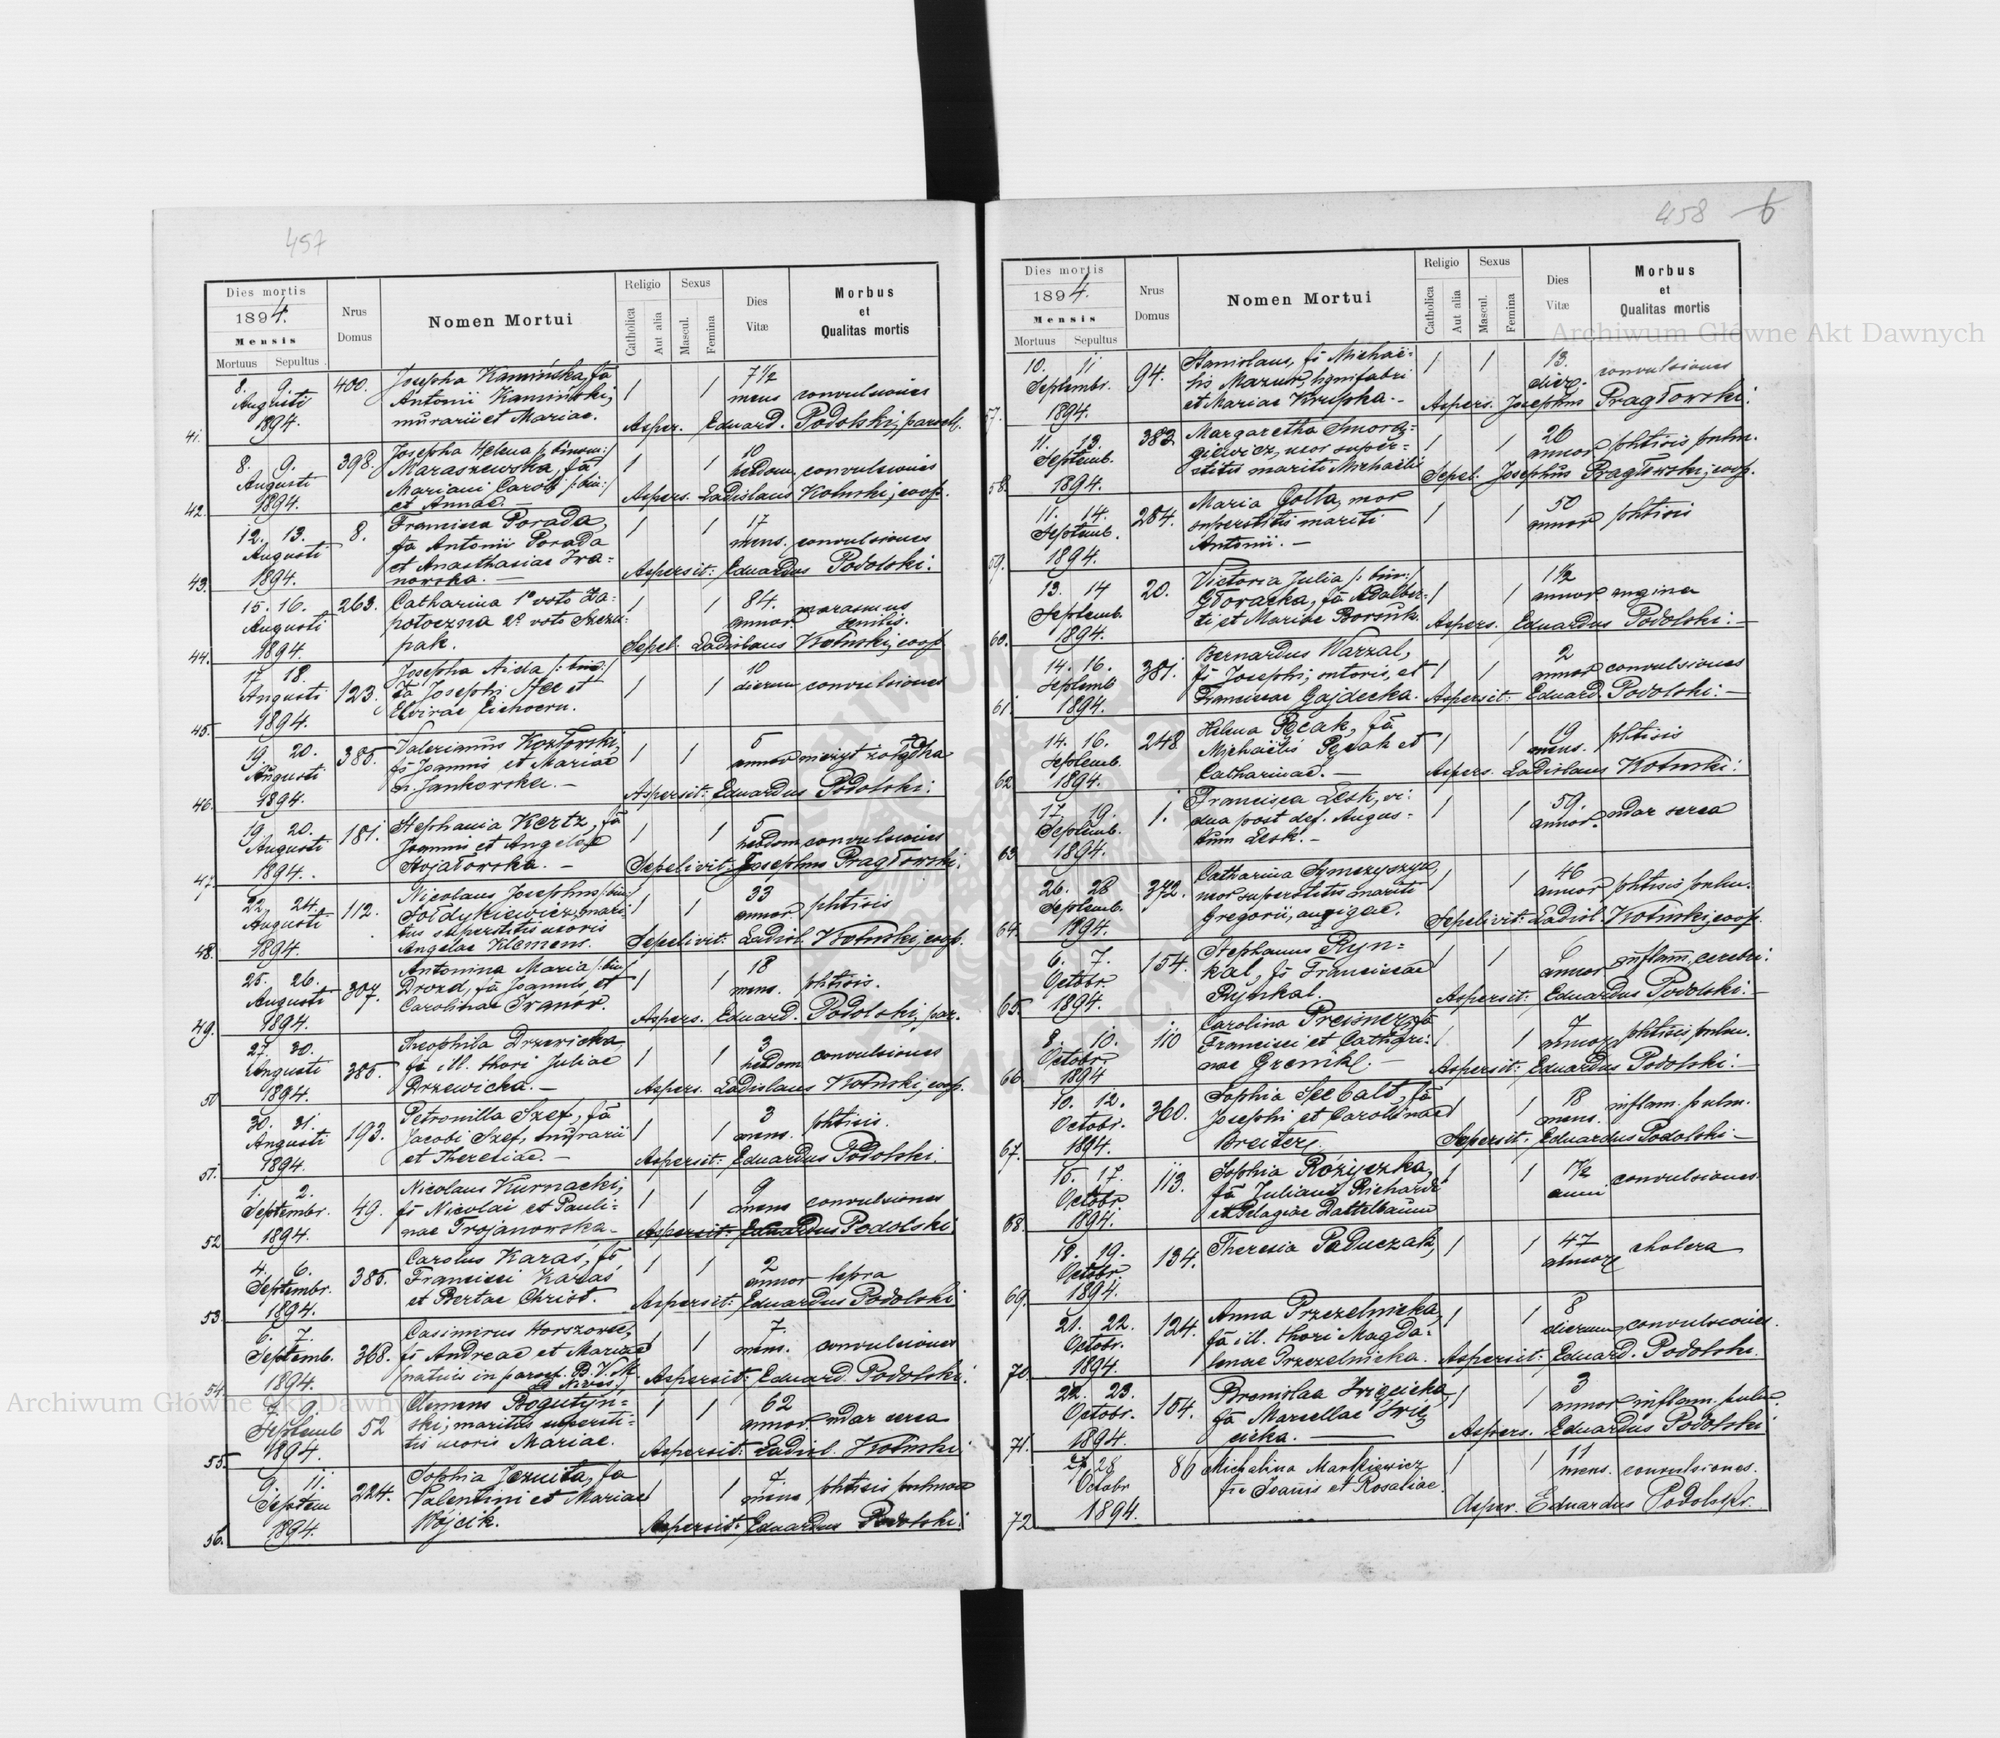 457
Dies mortis
1894.
Mensis
Mortuus Sepultus
Nrus
Domus
Nomen Mortui
Religio
Catholica
Aut alia
Sexus
Mascul.
Femina
Dies
Vitæ
Morbus
et
Qualitas mortis
41.
8. 9.
Augusti
1894.
400.
Josepha Kamińska, fa
Antonii Kamiński,
murarii et Mariae.
1 1
7 1/2
mens
convulsiones
Asper. Eduard. Podolski, paroch.
42.
8. 9.
Augusti
1894.
398.
Josepha Helena /: binom:/
Maraszewska, fa
Mariani Caroli /: bin:/
et Annae. —
1 1
10
hebdom. convulsiones
Aspers. Ladislaus Kotuski, coop.
43.
12. 13.
Augusti
1894.
8.
Francisca Porada,
fa Antonii Porada
et Anasthasiae Iwa-
nowska. —
1 1
17
mens. convulsiones
Aspersit: Eduardus Podolski.
44.
15. 16.
Augusti
1894
263.
Catharina 1º voto Za-
potoczna 2º voto Szcze-
pak.
1 1
84.
annor.
marasmus
senilis.
Sepel: Ladislaus Kotuski, coop.
45.
17. 18.
Augusti
1894.
123.
Josepha Aida /: bin:/
fa Josephi Hee et
Elvirae Eichorn.
1 1
10
dierum convulsiones
46.
19. 20.
Augusti
1894.
385.
Valerianus Kozłowski,
fs Joannis et Mariae
n. Jankowska. —
1 1
5
annor nieżyt żołądka
Aspersit: Eduardus Podolski.
47.
19. 20.
Augusti
1894.
181.
Stephania Kertz, fa
Joannis et Angelae
Stojałowska. —
1 1
5
hebdom. convulsiones
Sepelivit: Josephus Pragłowski.
48.
22. 24.
Augusti
1894.
112.
Nicolaus Josephus /: bin:/
Sołdykiewicz, mari-
tus superstitis uxoris
Angelae Klemens.
1 1
33
annor. phtisis
Sepelivit: Ladisl. Kotuski, coop.
49.
25. 26.
Augusti
1894.
307.
Antonina Maria /: bin:/
Drozd, fa Joannis, et
Carolinae Iwanow.
1 1
18
mens. phtisis.
Aspers. Eduard. Podolski, par.
50
27. 30.
Augusti
1894.
385.
Theophila Drzewicka
fa ill. thori Juliae
Drzewicka. —
1 1
3
hebdom convulsiones
Aspers. Ladislaus Kotuski, coop.
51.
30. 31.
Augusti
1894.
193.
Petronilla Szef, fa
Jacobi Szef, murarii
et Theresiae. —
1 1
3
mens. phtisis.
Aspersit: Eduardus Podolski.
52
1. 2.
Septembr.
1894.
49.
Nicolaus Kurnacki,
fs Nicolai et Pauli-
nae Trojanowska. —
1 1
9
mens convulsiones
Aspersit: Eduardus Podolski
53.
4. 6.
Septembr.
1894.
385.
Carolus Karaś, fs
Francisci Karaś
et Bertae Christ.
1 1
2
annor lepra
Aspersit: Eduardus Podolski
54.
6. 7.
Septemb.
1894.
368.
Casimirus Horszowski,
fs Andreae et Mariae
(natus in paroch. B.V.M.
ad Nives)
1 1
7.
mens. convulsiones
Aspersit: Eduard. Podolski.
55.
7. 9.
Septemb
1894.
52
Clemens Bogutyn-
ski, maritus supersti-
tis uxoris Mariae.
1 1
62
annor. udar serca
Aspersit: Ladisl. Kotuski.
56.
9. 11.
Septem
1894.
224.
Sophia Jezuita, fa
Valentini et Mariae
Wójcik.
1 1
7.
mens phtisis pulmon
Aspersit: Eduardus Podolski.
458 6
Dies mortis
1894.
Mensis
Mortuus Sepultus
Nrus
Domus
Nomen Mortui
Religio
Catholica
Aut alia
Sexus
Mascul.
Femina
Dies
Vitæ
Morbus
et
Qualitas mortis
57.
10. 11
Septembr.
1894.
94.
Stanislaus, fs Michaë-
lis Mazur, lignifabri
et Mariae Krupka. —
1 1
13.
dier.
convulsiones
Aspers. Josephus Pragłowski.
58.
11. 13.
Septemb.
1894.
383
Margaretha Smorą-
giewicz, uxor super-
stitis mariti Michaëlis
1 1
26
annor phtisis pulm.
Sepel. Josephus Pragłowski, coop.
59.
11. 14.
Septemb.
1894.
284.
Maria Golla, uxor
superstitis mariti
Antonii. —
1 1
50
annor phtisis
60.
13. 14
Septemb.
1894.
20.
Victoria Julia /: bin:/
Głoracka, fa Adalber-
ti et Mariae Borsuk.
1 1
1 1/2
annor angina
Aspers. Eduardus Podolski. —
61.
14. 16.
Septemb
1894.
381.
Bernardus Warzal,
fs Josephi, sutoris, et
Franciscae Gajdecka.
1 1
2
annor convulsiones
Aspersit: Eduard. Podolski. —
62
14. 16.
Septemb.
1894.
248
Helena Pęcak, fa
Michaëlis Pęcak et
Catharinae. —
1 1
19
mens. phtisis
Aspers. Ladislaus Kotuski.
63
17. 19.
Septemb.
1894.
1.
Francisca Lesk, vi-
dua post def. Augus-
tum Lesk. —
1 1
59.
annor. udar serca
64.
26. 28
Septemb.
1894.
372.
Catharina Szmczyszyn,
uxor superstitis mariti
Gregorii, aurigae.
1 1
46
annor phtisis pulm.
Sepelivit: Ladisl. Kotuski, coop.
65.
6. 7.
Octobr.
1894.
154.
Stephanus Ryn-
kal, fs Franciscae
Rynkal.
1 1
6
annor inflam. cerebri.
Aspersit: Eduardus Podolski. —
66
8. 10.
Octobr.
1894
110
Carolina Preisner, fa
Francisci et Cathari-
nae Grenikl. —
1 1
7
annor phtisis pulm.
Aspersit: Eduardus Podolski. —
67.
10. 12.
Octobr.
1894.
360.
Sophia Seebald, fa
Josephi et Carolinae
1 1
18
mens. inflam. pulm.
Aspersit: Eduardus Podolski. —
68.
15. 17.
Octobr.
1894.
113.
Sophia Różyczka,
fa Juliani Richardi
et Pelagiae Dattelbaum
1 1
1 1/2
anni convulsiones.
69.
18. 19.
Octobr.
1894.
134.
Theresia Paduczak,
1 1
47
annor cholera
70.
21. 22.
Octobr.
1894.
124.
Anna Przezelnicka,
fa ill. thori Magda-
lenae Przezelnicka.
1 1
8
dierum convulsiones.
Aspersit: Eduard. Podolski.
71.
22. 23.
Octobr.
1894.
154.
Bronislaa Święcicka,
fa Marcellae Świę-
cicka. —
1 1
3
annor inflam. pulm.
Aspers. Eduardus Podolski
72
27 28
Octobr
1894.
86
Michalina Markiewicz
fia Joanis et Rosaliae.
1 1
11
mens. convulsiones.
Asper. Eduardus Podolski.
Archiwum Główne Akt Dawnych
Archiwum Główne Akt Dawnych